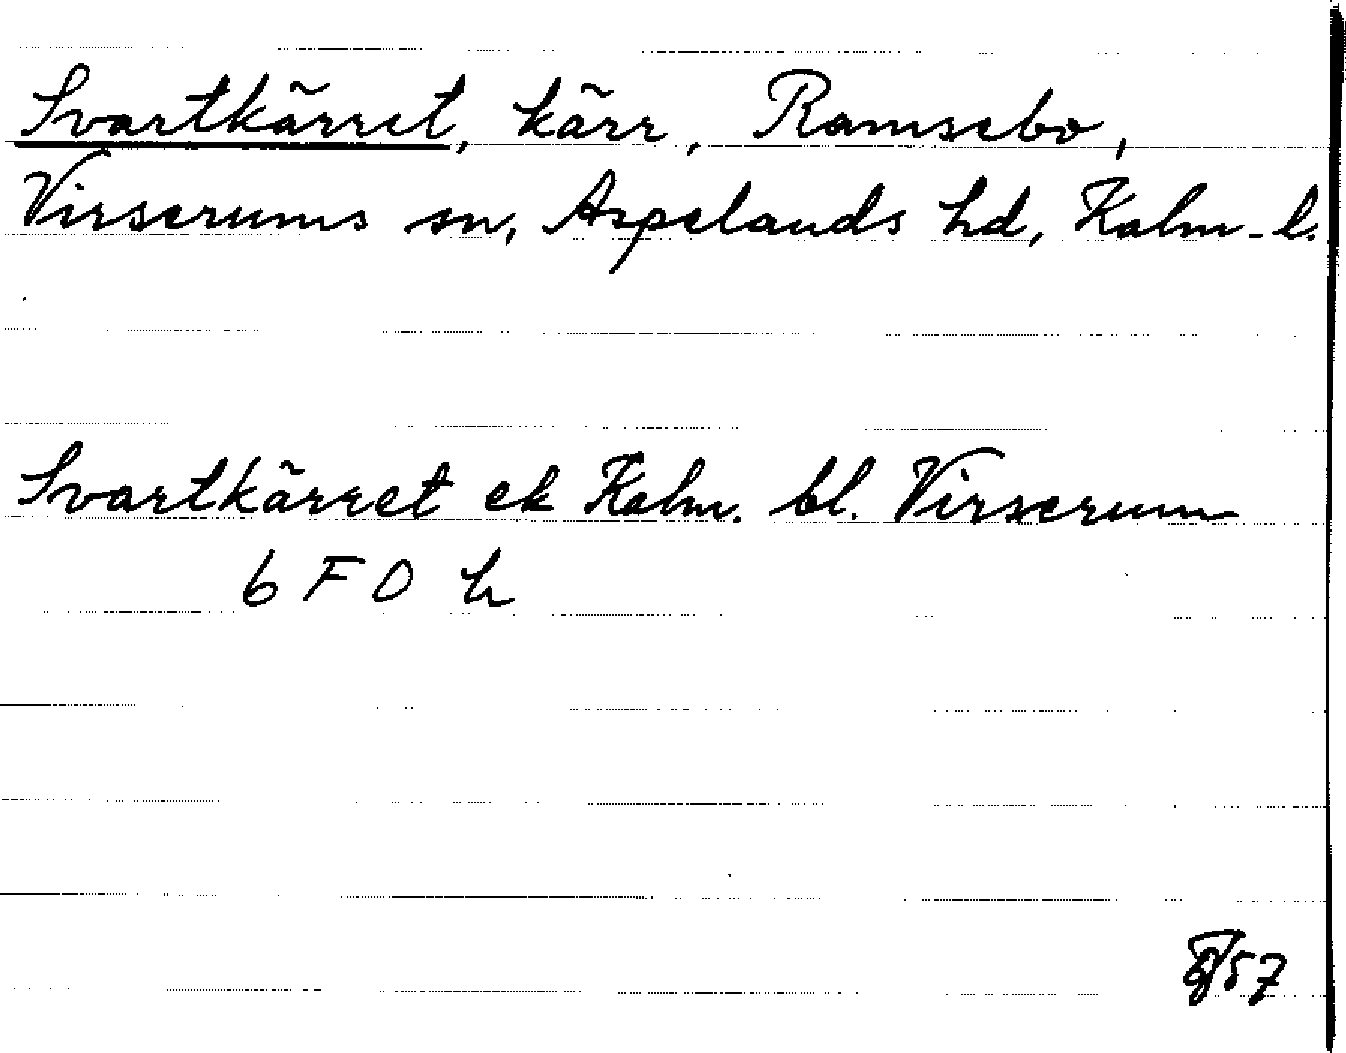 Svartkärret, kärr, Ramsebo,
Virserums sn, Aspelands hd, Kalm. l.
Svartkärret ek Kalm. bl. Virserum
6 F 0 h
57